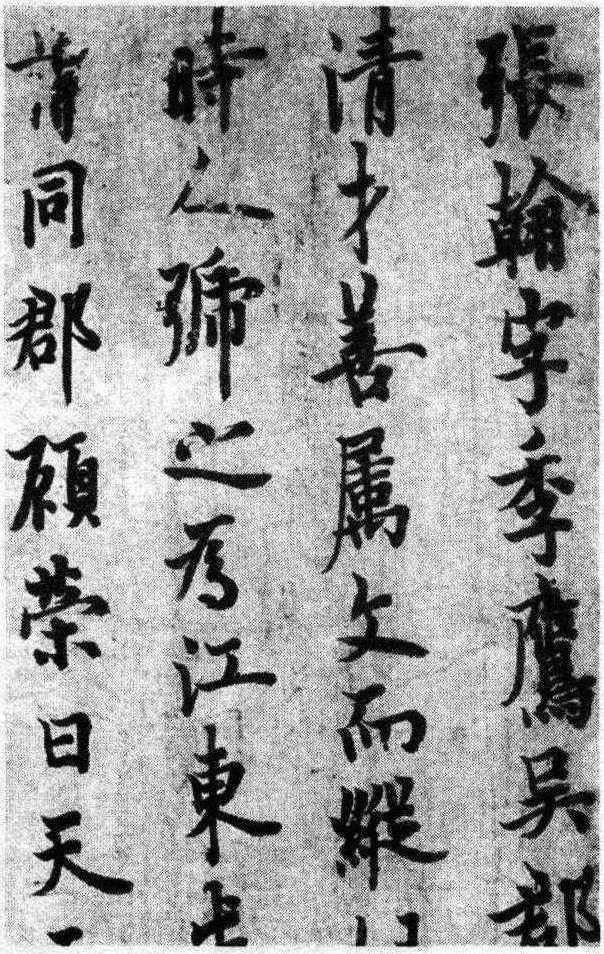 張翰字季鷹吳郡
清才善属文而縱
時人号之為江東
同郡顧榮曰天